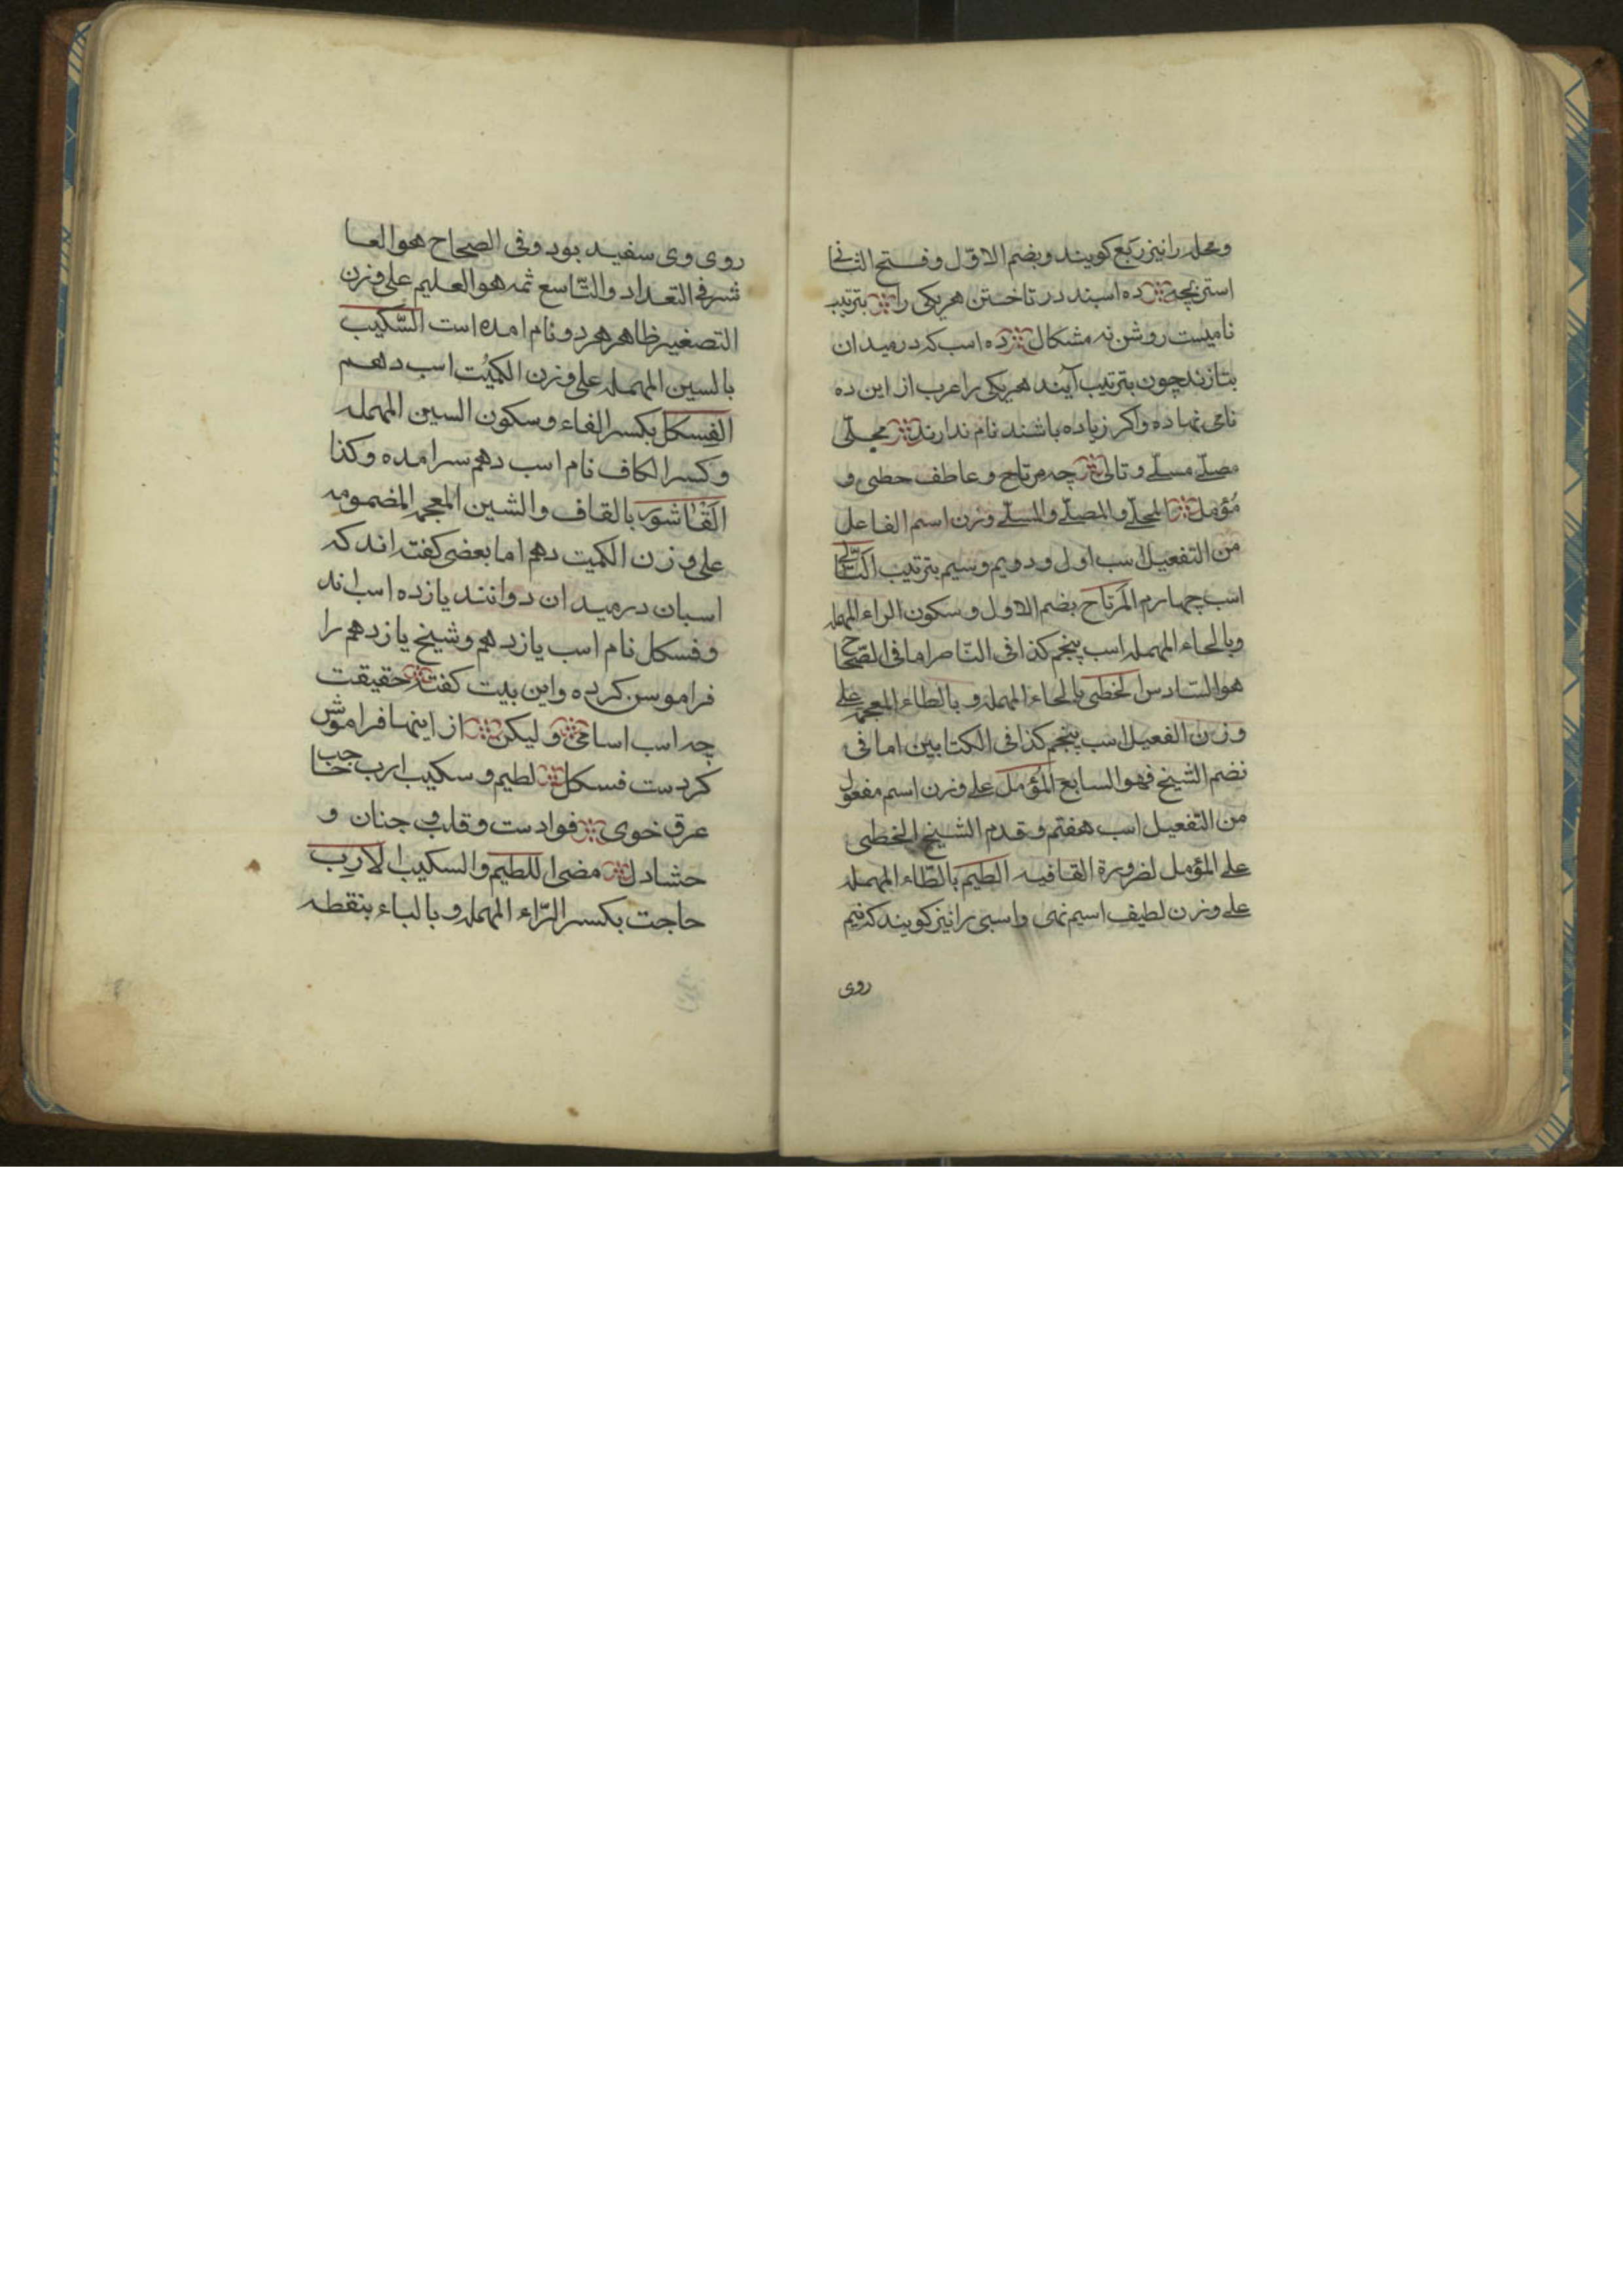 ومحله را نیز ربع کویند وبضم الاوّل وفتح الثانی
استر بچه ده اسبند در تاختن هریکی را بترتیب
نامیست روشن نه مشکال ده اسب که در میدان
بتازند چون بترتیب آیند هریکی را عرب از این ده
نامی نهاده واکر زیاده باشند نام ندارند مجلّی
مصلّے مسلّے وتالی چه مرتاح وعاطف حظی و
مُؤمل المجلّے والمصلّے والمسلّے وزن اسم الفاعل
من التفعیل اسب اول ودویم وسیم بترتیب التّالی
اسب چهارم المرتاح بضم الاول وسکون الراء المهمله
وبالحاء المهمله اسب پنجم کذا فی النّاصر اما فی الصّحاح
هو السّادس الحظی بالحاء المهمله وبالظاء المعجمه علی
وزن الفعیل اسب پنجم کذا فی الکتابین اما فی
نضم الشیخ فهو السابع المُؤمل علے وزن اسم مفعول
من التفعیل اسب هفتم وقدم الشیخ الحظی
علے المؤمل لضرورة القافیه الطیم بالطّاء المهمله
علے وزن لطیف اسیم نهی واسبی را نیز کویند که نیم
روی
روی وی سفید بود وفی الصحاح هو العا
شر فی التعداد والتّاسع ثمه هو العلیم علی وزن
التصغیر ظاهر هر دو نام امده است السّکیب
بالسین المهمله علی وزن الکمیُت اسب دهم
الفسکل بکسر الفاء وسکون السین المهمله
وکسر الکاف نام اسب دهم سر امده وکذا
القاشور بالقاف والشین المعجمه المضمومه
علی وزن الکمیت دهم اما بعضی کفته اند که
اسبان در میدان دوانند یازده اسب اند
وفسکل نام اسب یازدهم وشیخ یازدهم را
فراموسن کرده واین بیت کفته حقیقت
چه اسب اسامی ولیکن از اینها فراموش
کردست فسکل لطیم وسکیب ارب حاجب
عرق خوی فوادست وقلب و جنان و
حشا دل مضی اللطیم والسکیب الارِب
حاجت بکسر الرّاء المهمله وبالباء بنقطه